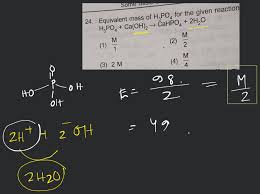 24. Equivalent mass of H₃PO₄ for the given reaction
H₃PO₄ + Ca(OH)₂ → CaHPO₄ + 2H₂O
(1) M/1 (2) M/2
(3) 2 M (4) M/4
O
HO P OH
OH
E = 98/2 = M/2
= 49
2H⁺ + 2⁻OH
2H2O